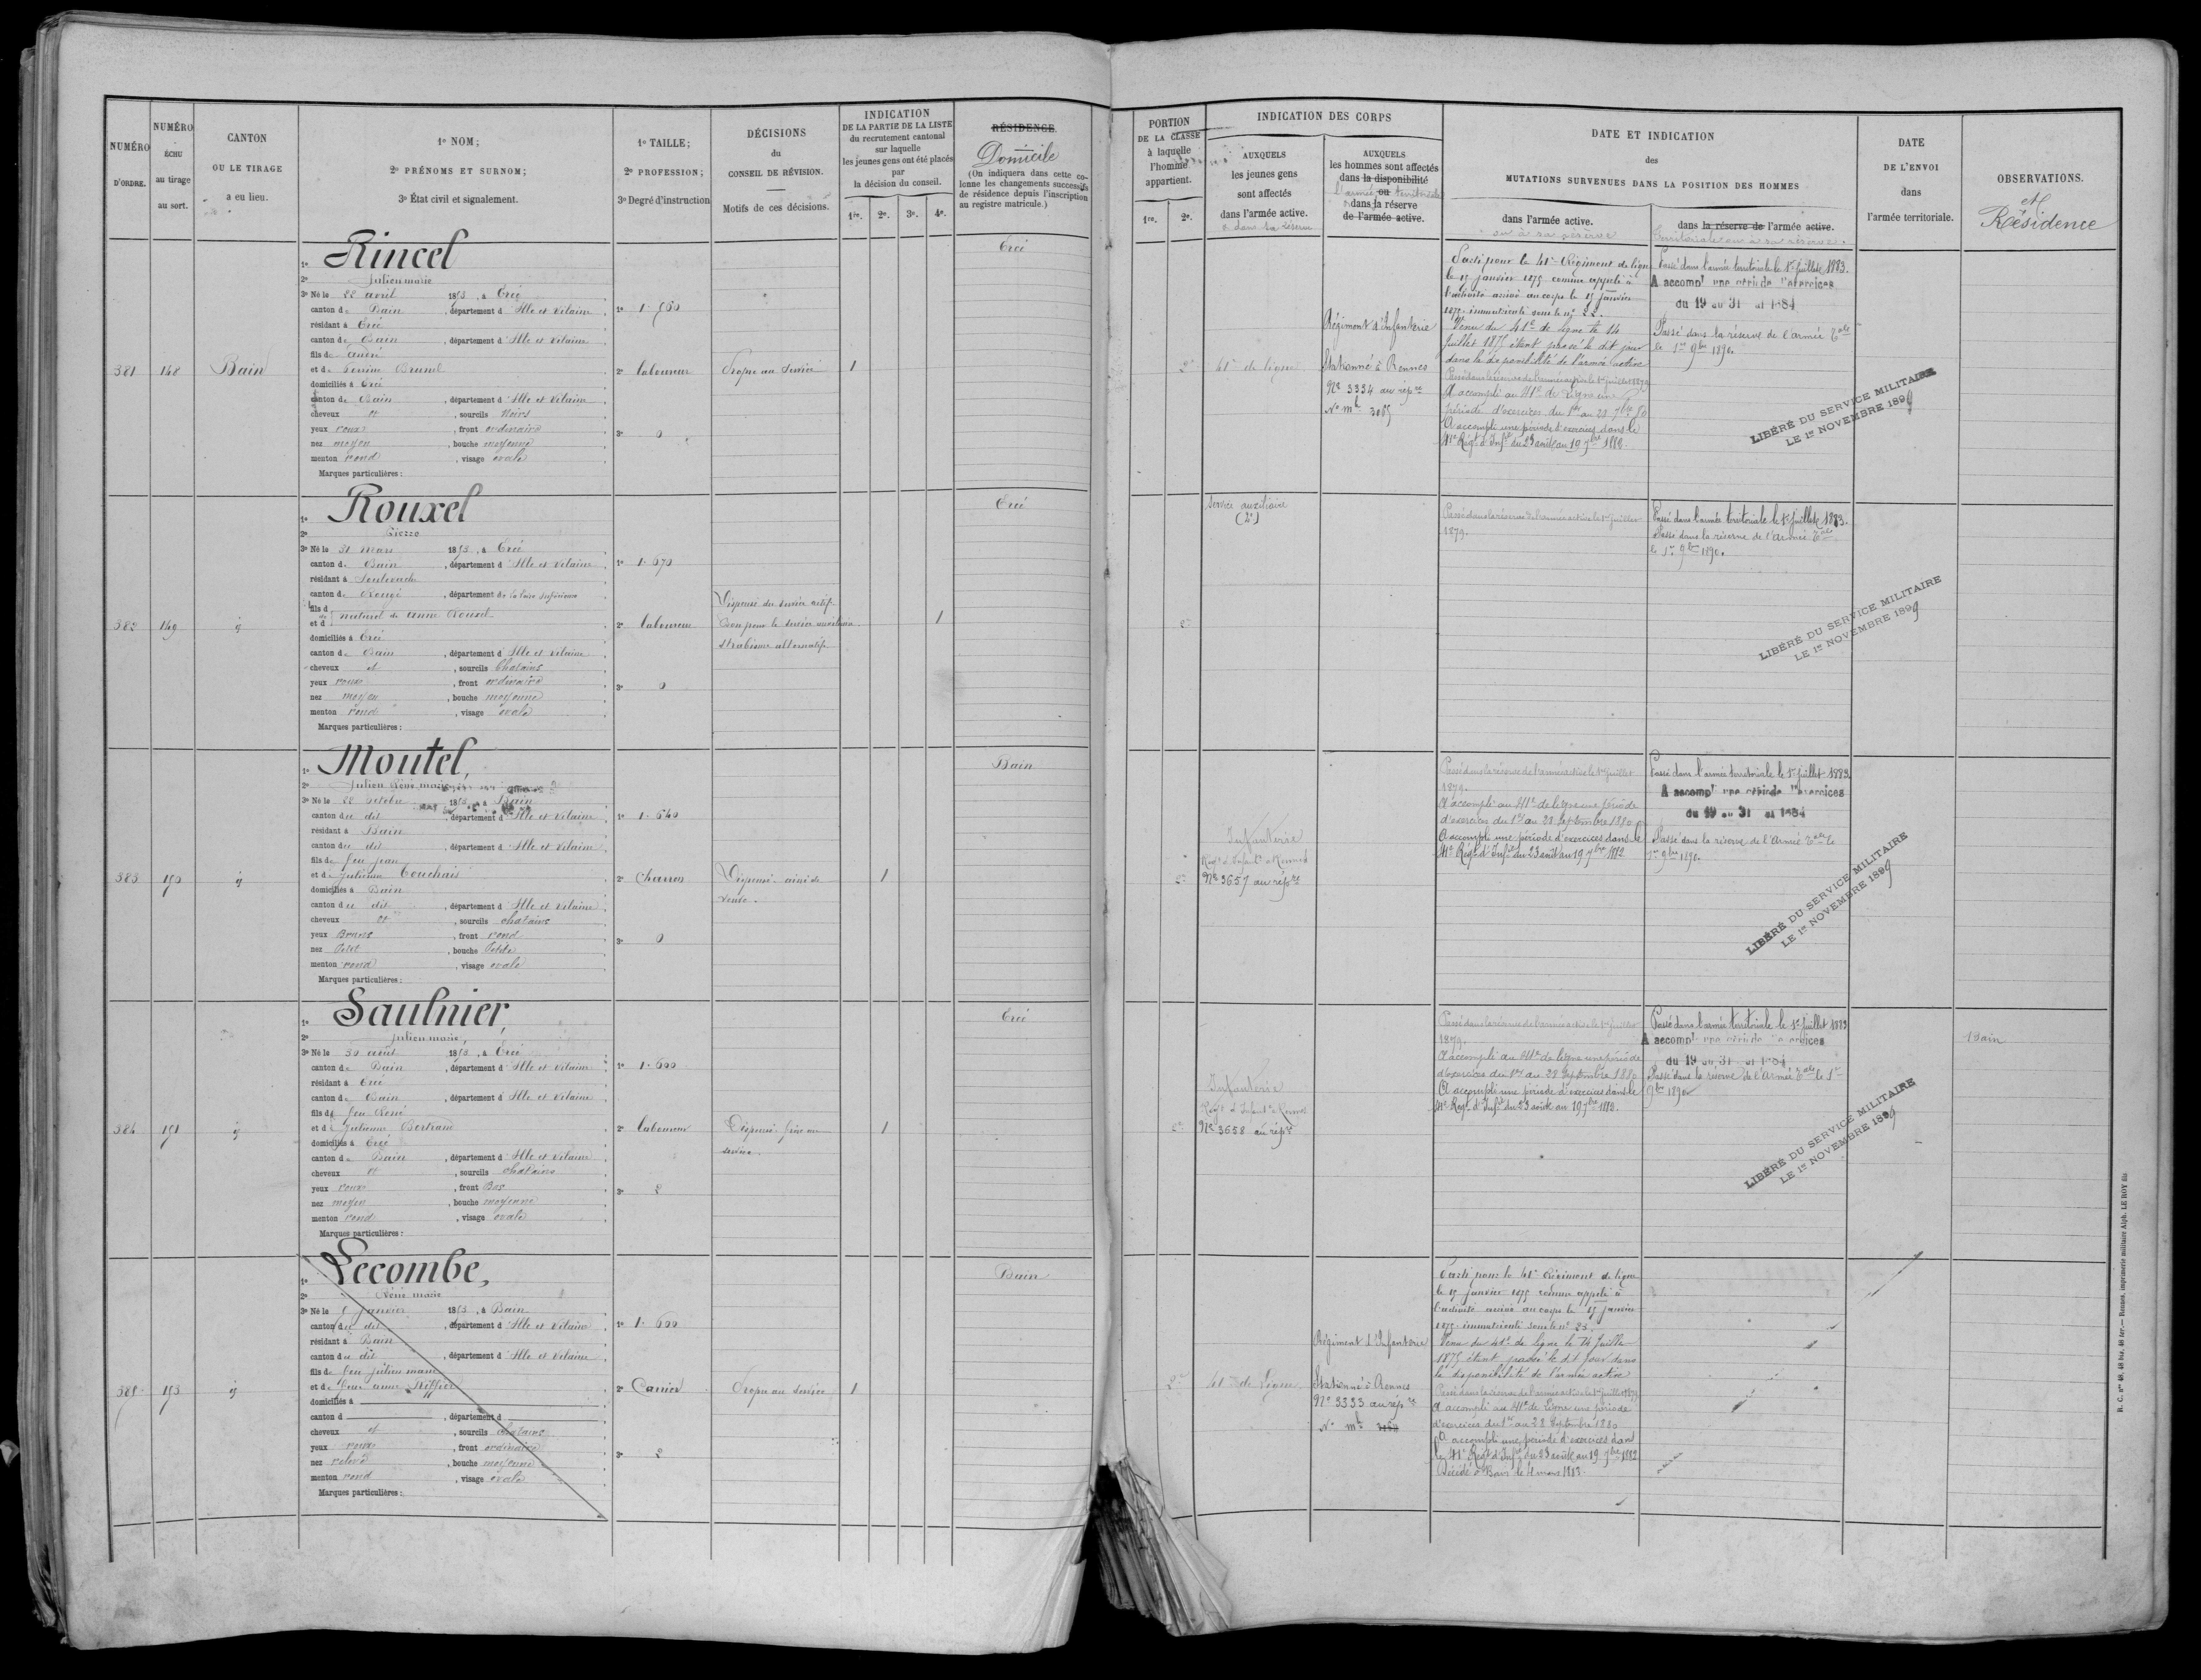 NUMÉRO D'ORDRE.
NUMÉRO ÉCHU au tirage au sort.
CANTON OU LE TIRAGE a eu lieu.
1º NOM;
2º PRÉNOMS ET SURNOM;
3º État civil et signalement.
1º TAILLE;
2º PROFESSION;
3º Degré d'instruction
DÉCISIONS
du
CONSEIL DE RÉVISION.
Motifs de ces décisions.
INDICATION
DE LA PARTIE DE LA LISTE
du recrutement cantonal
sur laquelle
les jeunes gens ont été placés
par
la décision du conseil.
1re. 2e. 3e. 4e.
RÉSIDENCE
Domicile
(On indiquera dans cette co-
lonne les changements successifs
de résidence depuis l'inscription
au registre matricule.)
PORTION
DE LA CLASSE
à laquelle
l'homme
appartient.
1re. 2e.
INDICATION DES CORPS
AUXQUELS
les jeunes gens
sont affectés
dans l'armée active.
AUXQUELS
les hommes sont affectés
dans la disponibilité
l'armée ou territoriale
dans la réserve
de l'armée active.
DATE ET INDICATION
des
MUTATIONS SURVENUES DANS LA POSITION DES HOMMES
dans l'armée active.
ou à sa réserve
dans la réserve de l'armée active.
territoriale ou à sa réserve.
DATE
DE L'ENVOI
dans
l'armée territoriale.
OBSERVATIONS.
et
Résidence
381
148
Bain
1º Rincel
2º Julien marie
3º Né le 22 avril 1853, à Ercé
canton de Bain, département d'Ille et Vilaine
résidant à Ercé
canton de Bain, département d'Ille et Vilaine
fils de
et de Perrine Brunel
domiciliés à Ercé
canton de Bain, département d'Ille et Vilaine
cheveux et, sourcils Noirs
yeux roux, front ordinaire
nez moyen, bouche moyenne
menton rond, visage ovale
Marques particulières :
1º 1.560
2º laboureur
3º 0
Propre au Service
1
Ercé
2e
41e de ligne
Régiment d'Infanterie
Stationné à Rennes
Nº 3334 au rép re
Nº mle 3065
Parti pour le 41e Régiment de ligne
le 15 janvier 1875 comme appelé à
l'activité arrivé au corps le 15 janvier
1875. immatriculé sous le nº 22.
Venu du 41e de ligne le 14
Juillet 1875 étant passé le dit jour
dans la disponibilité de l'armée active
Passé dans la réserve de l'armée active le 1er juillet 1879
A accompli au 41e de Ligne une
période d'exercices du 1er au 28 7bre 80
A accompli une période d'exercices dans le
41e Régt d'Infie du 23 août au 19 7bre 1882.
Passé dans l'armée territoriale le 1er Juillet 1883.
A accompli une période d'exercices
du 19 au 31 1884
Passé dans la réserve de l'armée Tale
le 1er 9bre 1890.
LIBÉRÉ DU SERVICE MILITAIRE
LE 1er NOVEMBRE 1899
382
149
id
1º Rouxel
2º Pierre
3º Né le 31 mars 1853, à Ercé
canton de Bain, département d'Ille et Vilaine
résidant à Soulvache
canton de Rougé, département de la Loire Inférieure
fils naturel de Anne Rouxel
et d
domiciliés à Ercé
canton de Bain, département d'Ille et Vilaine
cheveux et, sourcils Chatains
yeux roux, front ordinaire
nez moyen, bouche moyenne
menton rond, visage ovale
Marques particulières :
1º 1.670
2º laboureur
3º 0
Dispensé du service actif
Bon pour le service auxiliaire.
Strabisme alternatif
1
Ercé
2e
Service auxiliaire
(2e)
Passé dans la réserve de l'armée active le 1er juillet
1879.
Passé dans l'armée territoriale le 1er Juillet 1883.
Passé dans la réserve de l'Armée Tale
le 1er 9bre 1890.
LIBÉRÉ DU SERVICE MILITAIRE
LE 1er NOVEMBRE 1899
383
150
id
1º Moutel,
2º Julien René marie
3º Né le 28 octobre 1853, à Bain
canton du dit, département d'Ille et Vilaine
résidant à Bain
canton du dit, département d'Ille et Vilaine
fils de feu jean
et de Julienne Couchais
domiciliés à Bain
canton du dit, département d'Ille et Vilaine
cheveux et, sourcils chatains
yeux Bruns, front rond
nez Petit, bouche Petite
menton rond, visage ovale
Marques particulières :
1º 1.640
2º Charron
3º 0
Dispensé. ainé de
veuve.
1
Bain
2e
Infanterie
Régt d'Infanie à Rennes
Nº 3657 au rép re
Passé dans la réserve de l'armée active le 1er juillet
1879.
A accompli au 41e de ligne une période
d'exercices du 1er au 28 Septembre 1880
A accompli une période d'exercices dans le
41e Régt d'Infie du 23 août au 19 7bre 1882
Passé dans l'armée territoriale le 1er Juillet 1883
A accompli une période d'exercices
du 19 au 31 1884
Passé dans la réserve de l'Armée Tale le
1er 9bre 1890.
LIBÉRÉ DU SERVICE MILITAIRE
LE 1er NOVEMBRE 1899
384
151
id
1º Saulnier,
2º Julien marie,
3º Né le 30 août 1853, à Ercé
canton de Bain, département d'Ille et Vilaine
résidant à Ercé
canton de Bain, département d'Ille et Vilaine
fils de feu René
et de Julienne Bertrand
domiciliés à Ercé
canton de Bain, département d'Ille et Vilaine
cheveux et, sourcils chatains
yeux roux, front Bas
nez moyen, bouche moyenne
menton rond, visage ovale
Marques particulières :
1º 1.600
2º laboureur
3º 2
Dispensé frère au
service.
1
Ercé
2e
Infanterie
Régt d'Infanie Rennes
Nº 3658 au rép re
Passé dans la réserve de l'armée active le 1er juillet
1879.
A accompli au 41e de ligne une période
d'exercices du 1er au 28 Septembre 1880
A accompli une période d'exercices dans le
41e Régt d'Infie du 23 août au 19 7bre 1882.
Passé dans l'armée territoriale le 1er Juillet 1883
A accompli une période d'exercices
du 19 au 31 1884
Passé dans la réserve de l'Armée Tale le 1er
9bre 1890
LIBÉRÉ DU SERVICE MILITAIRE
LE 1er NOVEMBRE 1899
Bain
385
153
id
1º Lecombe,
2º René marie
3º Né le 5 Janvier 1853, à Bain
canton du dit, département d'Ille et Vilaine
résidant à Bain
canton du dit, département d'Ille et Vilaine
fils de feu julien marie
et de feue anne
domiciliés à
canton d, département d
cheveux et, sourcils chatains
yeux roux, front ordinaire
nez relevé, bouche moyenne
menton rond, visage ovale
Marques particulières :
1º 1.600
2º Carrier
3º 2
Propre au Service
1
Bain
2e
41e de ligne
Régiment d'Infanterie
Stationné à Rennes
Nº 3333 au rép re
Nº mle
Parti pour le 41e Régiment de ligne
le 15 janvier 1875 comme appelé à
l'activité arrivé au corps le 15 janvier
1875. immatriculé sous le nº 23.
Venu du 41e de ligne le 14 Juillet
1875 étant passé le dit jour dans
la disponibilité de l'armée active
Passé dans la réserve de l'armée active le 1er juillet 1879
A accompli au 41e de Ligne une période
d'exercices du 1er au 28 Septembre 1880
A accompli une période d'exercices dans
le 41e Régt d'Infie du 23 août au 19 7bre 1882
Décédé à Bain le 4 mars 1883.
R. C. nos 48, 48 bis, 48 ter. — Rennes, imprimerie militaire Alph. LE ROY fils